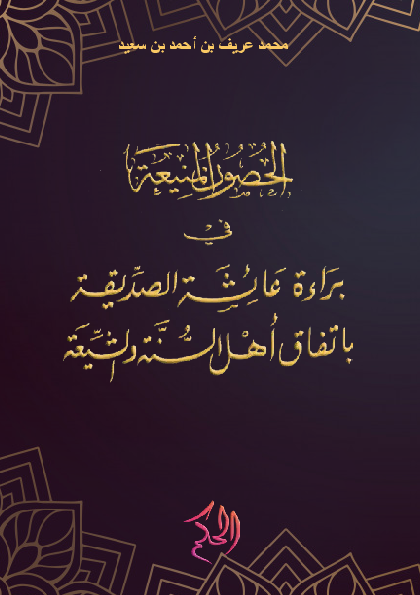 محمد عريف بن أحمد بن سعيد
الحصون المنيعة
في
براءة عائشة الصديقة
باتفاق أهل السنة والشيعة
الحكم